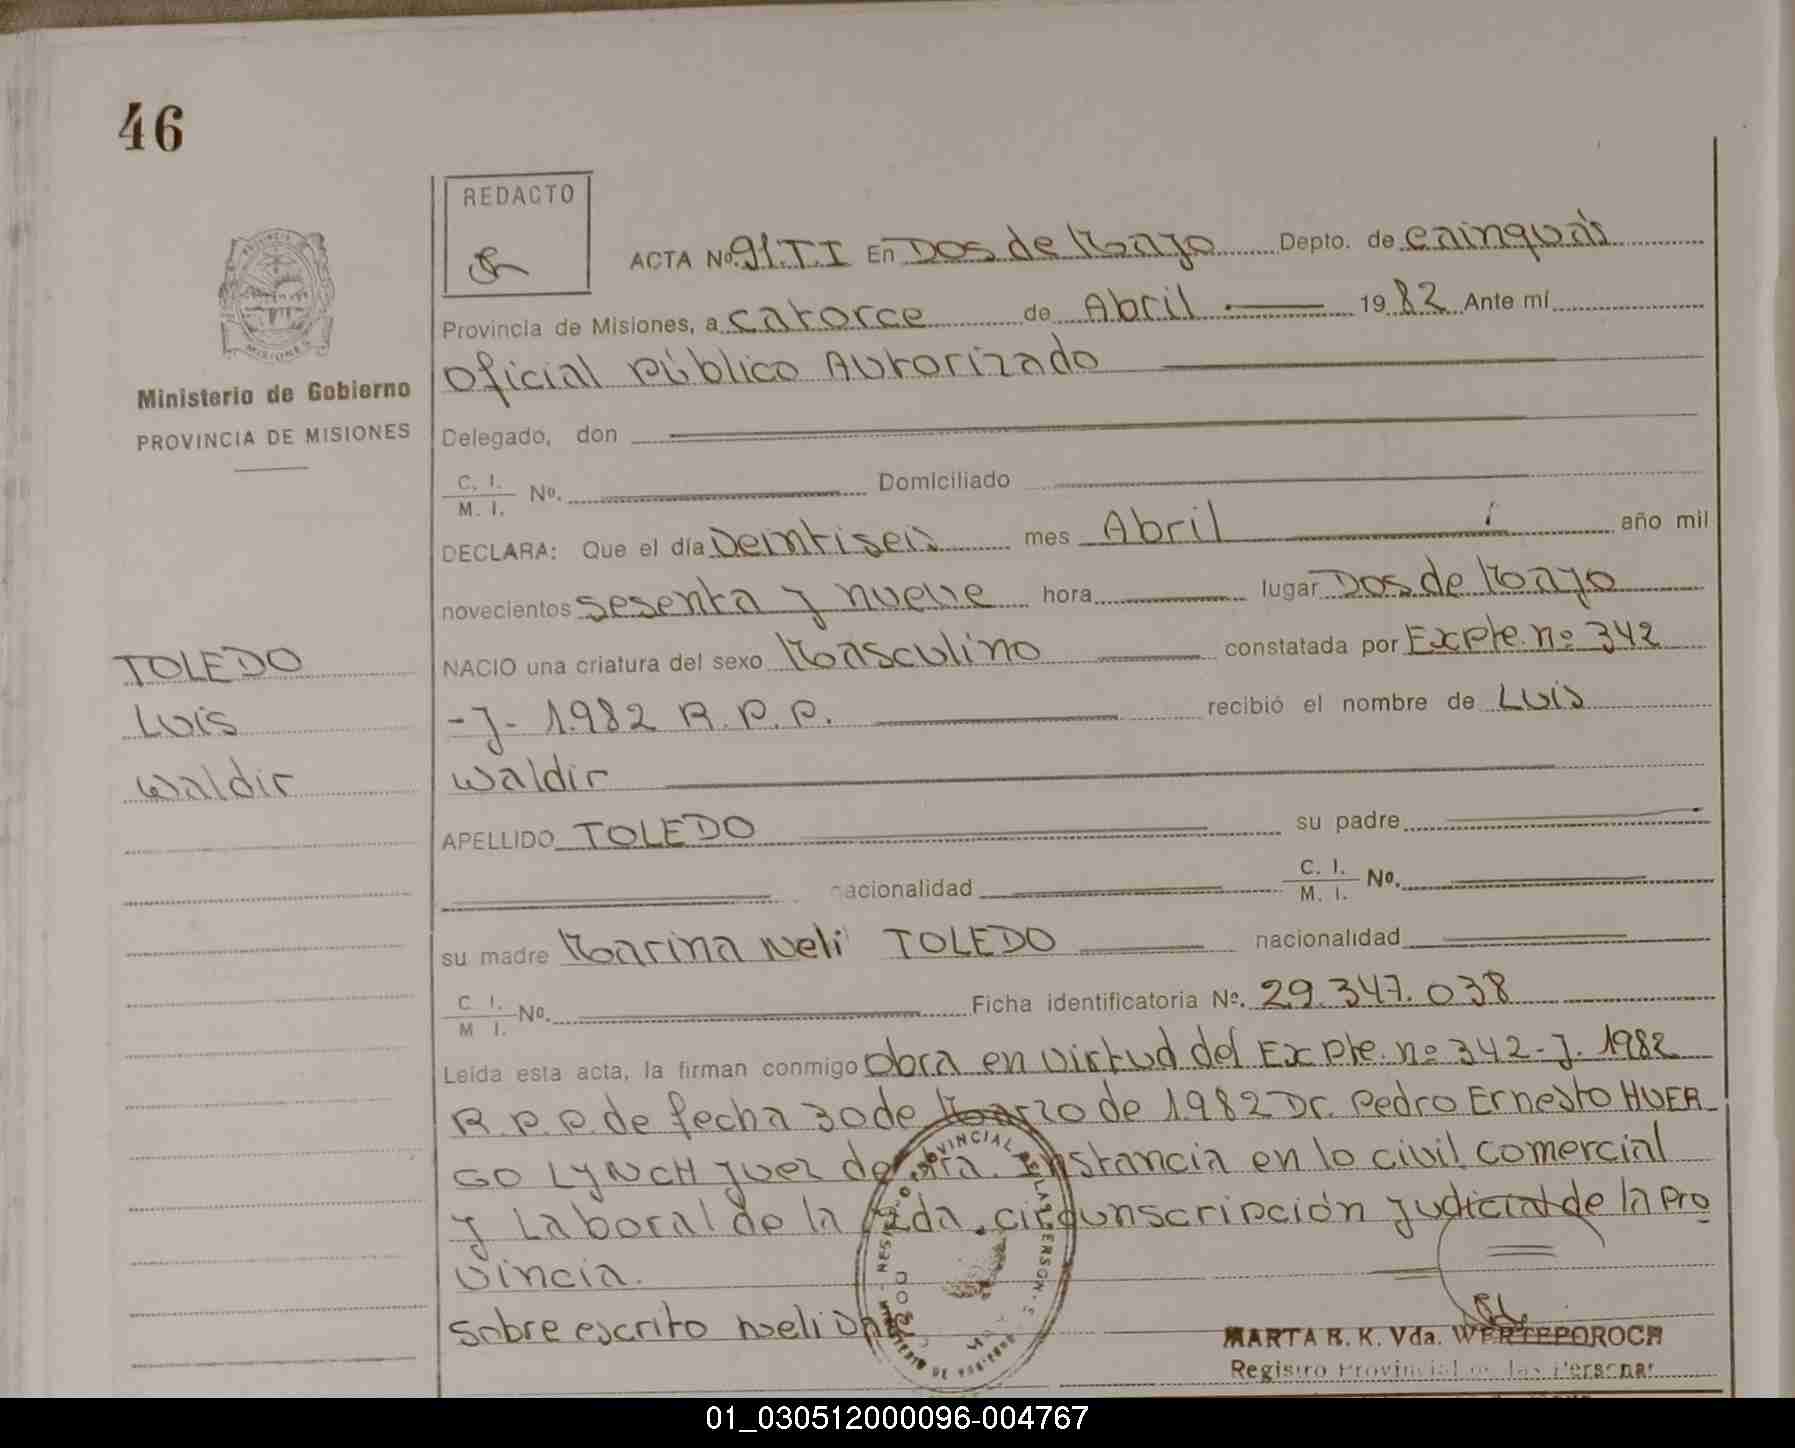 46
REDACTO
PROVINCIA
MISIONES
Ministerio de Gobierno
PROVINCIA DE MISIONES
ACTA Nº. 91.T.I En Dos de Mayo Depto. de Cainguás
Provincia de Misiones, a catorce de Abril 1982 Ante mí
Oficial Público Autorizado
Delegado, don
C. I.
M. I. Nº. Domiciliado
DECLARA: Que el día Veintiseis mes Abril año mil
novecientos sesenta y nueve hora lugar Dos de Mayo
NACIO una criatura del sexo Masculino constatada por Expte. nº 342
-J- 1.982 R.P.P. recibió el nombre de Luis
Waldir
APELLIDO TOLEDO su padre
nacionalidad C. I.
M. I. Nº.
su madre Marina Neli TOLEDO nacionalidad
C. I.
M. I. Nº. Ficha identificatoria Nº. 29.347.038
Leída esta acta, la firman conmigo Obra en virtud del Expte. nº 342-J-1982
R.P.P. de fecha 30 de Marzo de 1.982 Dr. Pedro Ernesto HUER-
GO LYNCH Juez de 1ra. Instancia en lo civil comercial
y Laboral de la 2da. circunscripción judicial de la Pro
vincia.
sobre escrito Neli
TOLEDO
Luis
Waldir
MARTA R. K. Vda. WERTEPOROCH
Registro Provincial de las Personas
01_030512000096-004767